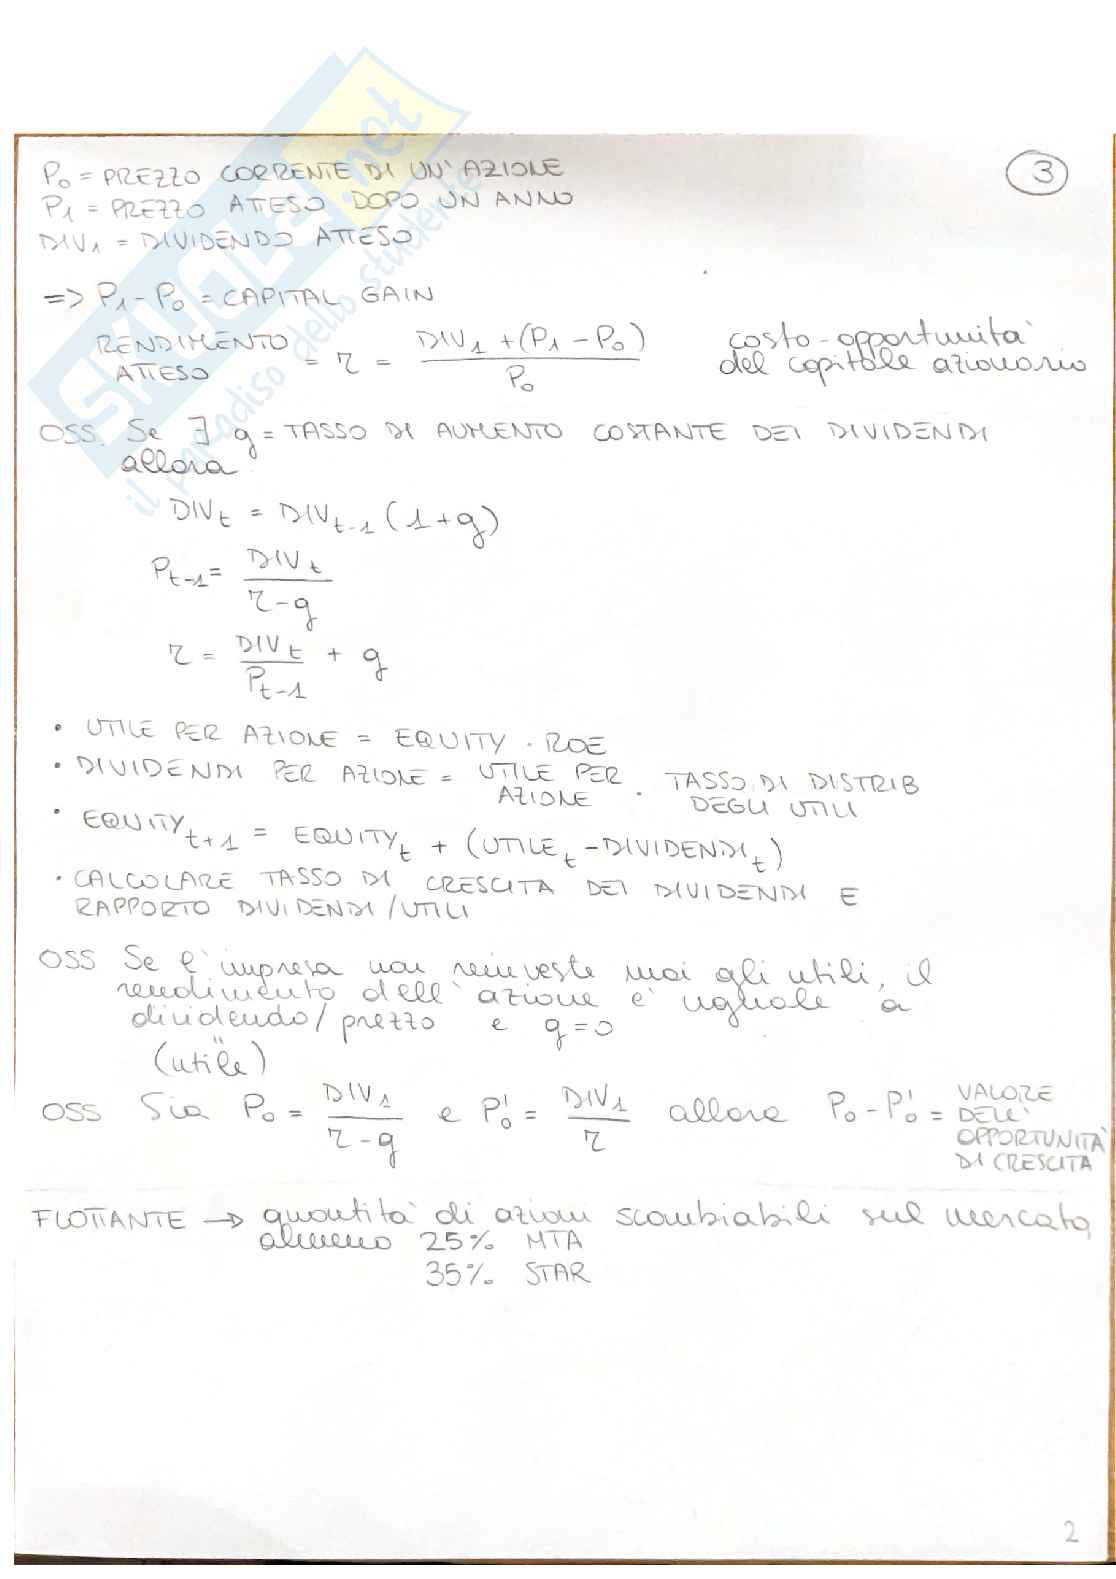 SKUOLA.net
il paradiso dello studente
3
P₀ = PREZZO CORRENTE DI UN'AZIONE
P₁ = PREZZO ATTESO DOPO UN ANNO
DIV₁ = DIVIDENDO ATTESO
=> P₁ - P₀ = CAPITAL GAIN
RENDIMENTO ATTESO = r = (DIV₁ + (P₁ - P₀)) / P₀ costo-opportunità
del capitale azionario
OSS. Se ∃ g = TASSO DI AUMENTO COSTANTE DEI DIVIDENDI
allora
DIVₜ = DIVₜ₋₁ (1+g)
Pₜ₋₁ = DIVₜ / (r - g)
r = DIVₜ / Pₜ₋₁ + g
• UTILE PER AZIONE = EQUITY · ROE
• DIVIDENDI PER AZIONE = UTILE PER AZIONE · TASSO DI DISTRIB DEGLI UTILI
• EQUITYₜ₊₁ = EQUITYₜ + (UTILEₜ - DIVIDENDIₜ)
• CALCOLARE TASSO DI CRESCITA DEI DIVIDENDI E
RAPPORTO DIVIDENDI/UTILI
OSS Se l'impresa non reinveste mai gli utili, il
rendimento dell'azione è uguale a
dividendo/prezzo e g=0
"
(utile)
OSS Sia P₀ = DIV₁ / (r - g) e P₀' = DIV₁ / r allora P₀ - P₀' = VALORE DELL' OPPORTUNITÀ DI CRESCITA
FLOTTANTE → quantità di azioni scambiabili sul mercato,
almeno 25% MTA
35% STAR
2